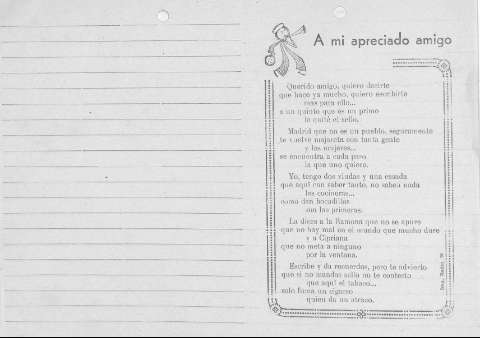 A mi apreciado amigo
Querido amigo, quiero decirte
que hace ya mucho, quiero escribirte
mas para ello...
a un quinto que es un primo
le quité el sello.
Madrid que no es un pueblo, seguramente
te vuelve majareta con tanta gente
y las mujeres...
se encuentra a cada paso
la que uno quiere.
Yo, tengo dos viudas y una casada
que aquí con saber tanto, no saben nada
las cocineras...
como dan bocadillos
son las primeras.
La dices a la Ramona que no se apure
que no hay mal en el mundo que mucho dure
y a Cipriana
que no meta a ninguno
por la ventana.
Escribe y da recuerdos, pero te advierto
que si no mandas sello no te contesto
que aquí el tabaco...
solo fuma un cigarro
quien da un atraco.